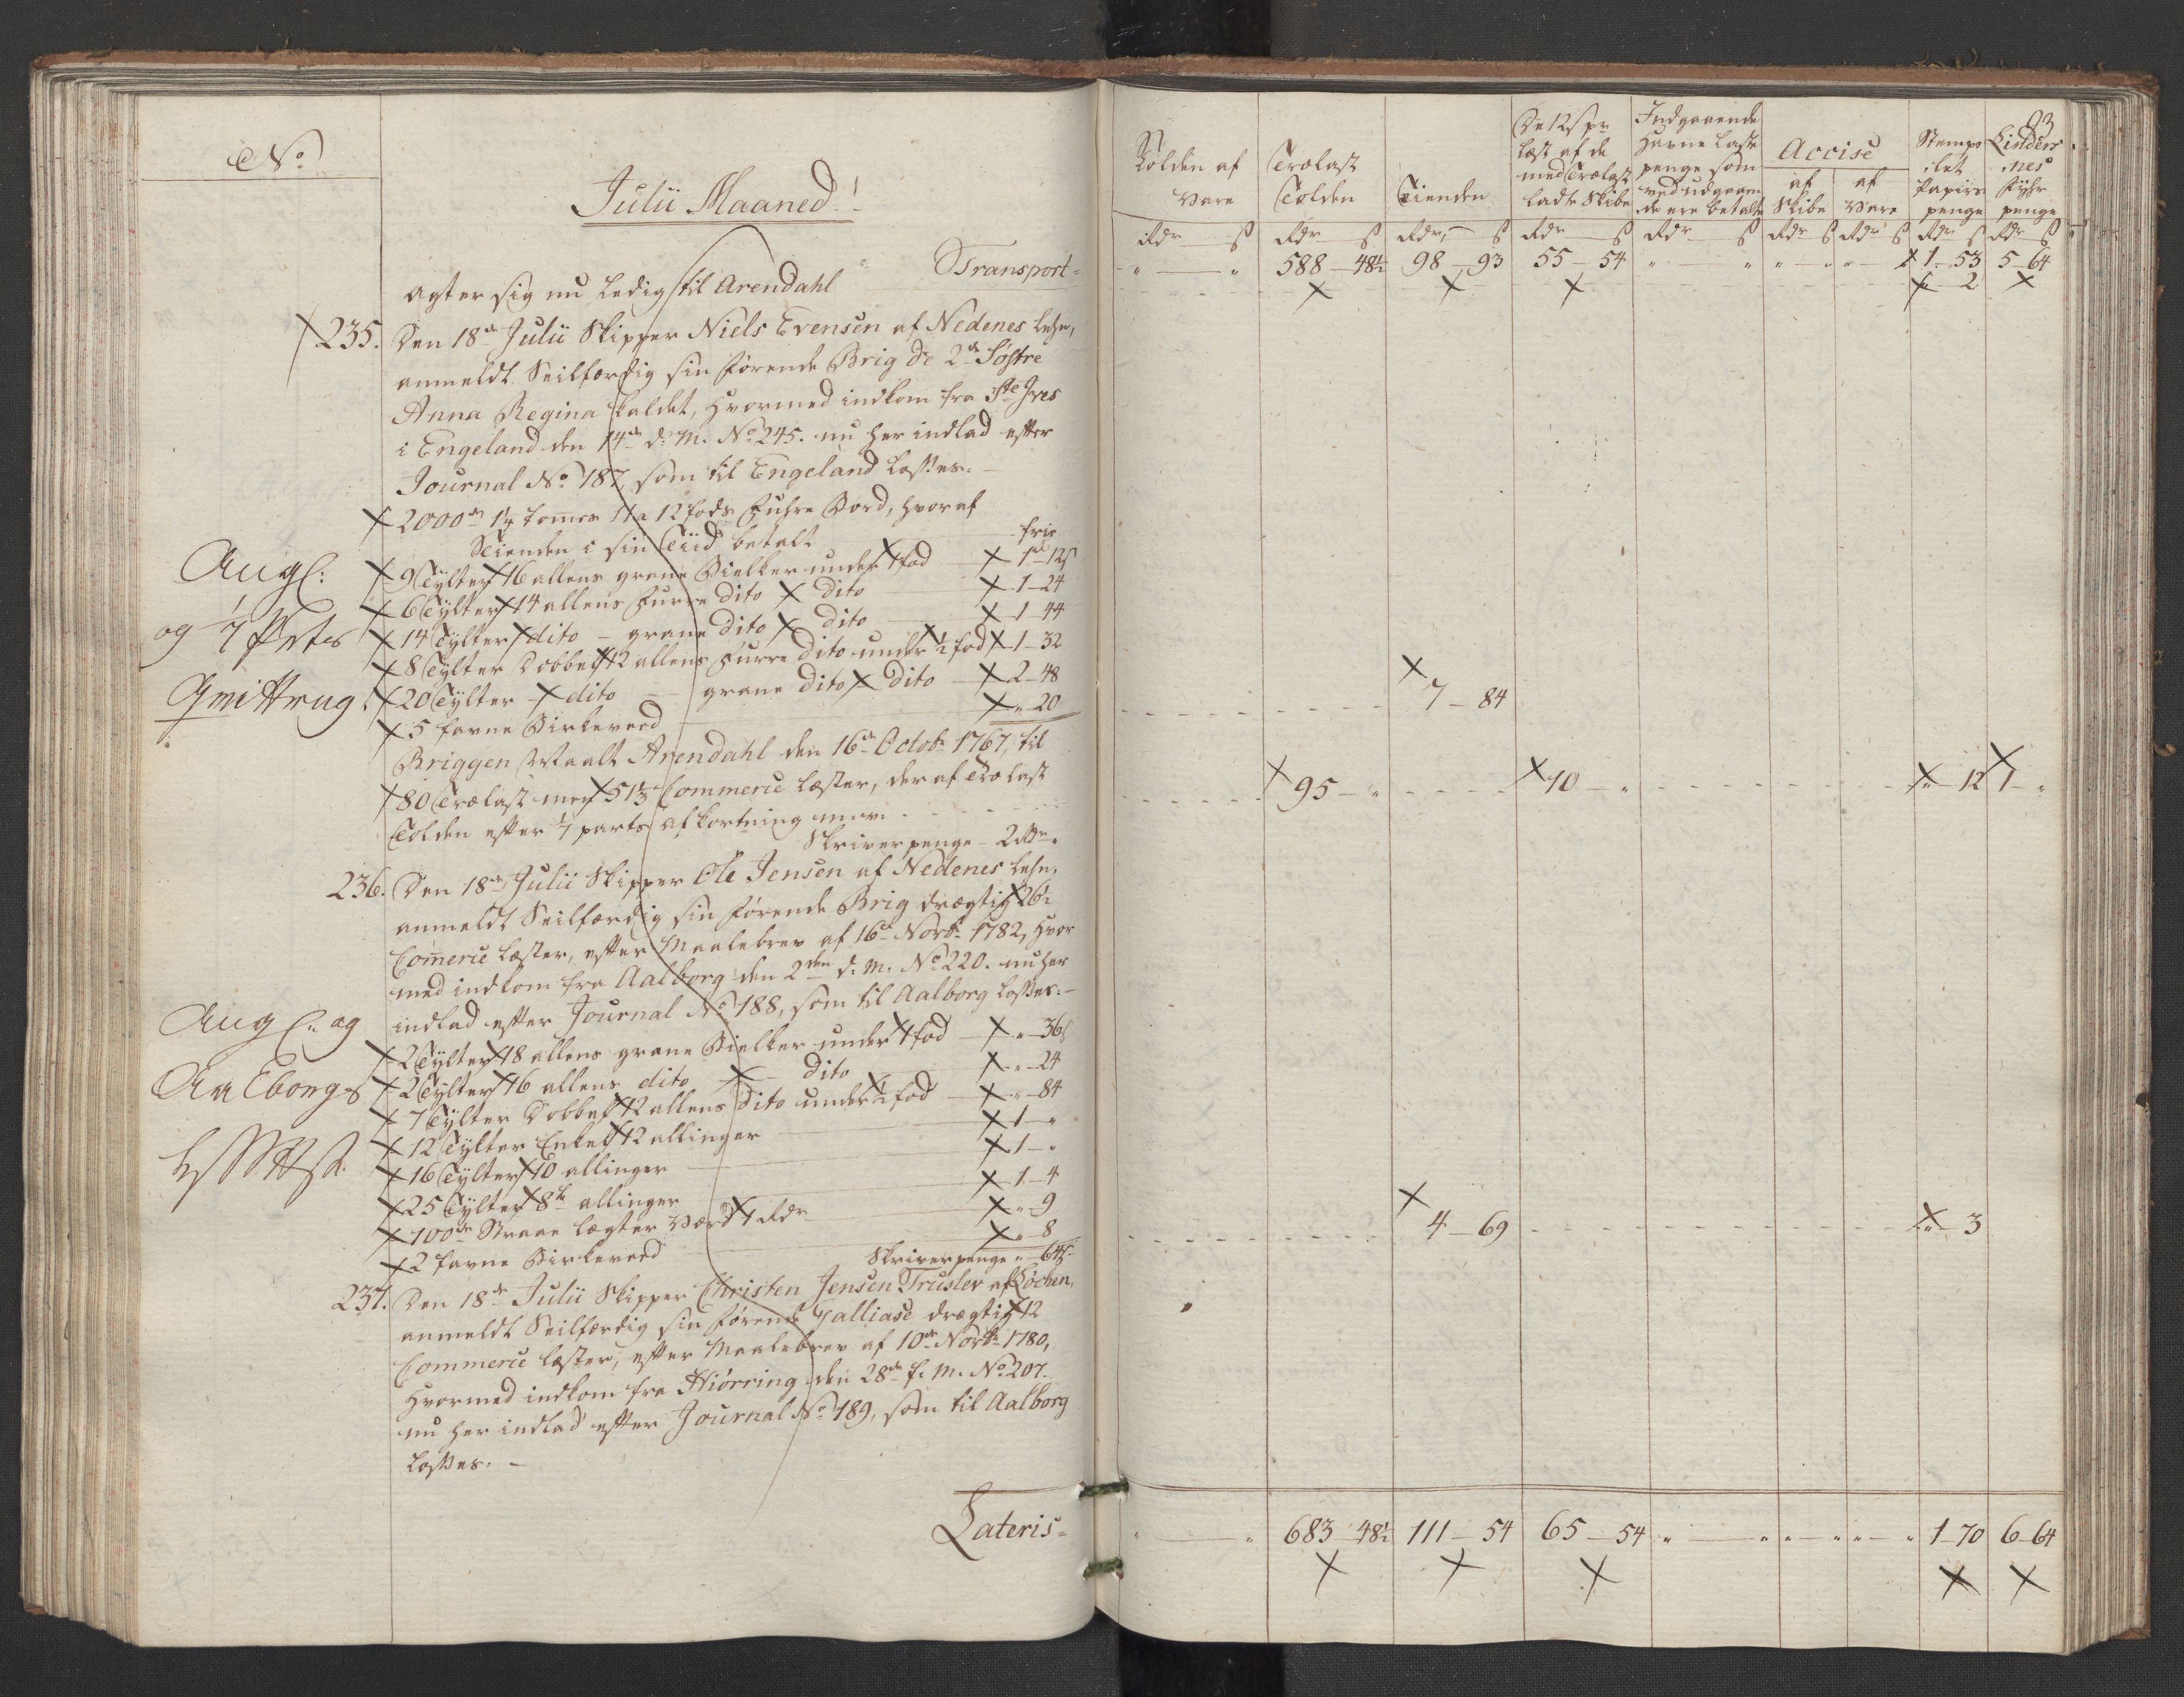 No.
Julii Maaned!
Transport =
agter sig nu ledig til Arendahl
235. Den 18de Julii Skipper Niels Evensen af Nedenes Lehn,
anmeldt Seilfærdig sin førende Brig De 2de Søstre
Anna Regina kaldet, hvormed indkom fra Ste Ives
i Engeland den 14de d: M. No 245. nu her indlad efter
Journal No 187, som til Engeland losses. -
2000de 1¼ tommes 11 a 12 fods Fuhre Bord, hvoraf
Tienden i sin Tiid betalt frie
Angl:
9 Tylter 16 allens grane Bielker under 1 fod 1rd 12s
6 Tylter 14 allens Furre dito dito 1 - 24
og
14 Tylter dito - grane dito dito 1 - 44
8 Tylter Dobbelt 12 allens Furre dito under ½ fod 1 - 32
Qvittrug.
20 Tylter dito - grane dito dito 2 - 48
5 favne Birkeveed " 20
Briggen Maalt Arendahl den 16de Octobr 1767, til
80 Trælast med 51½ Commerce Læster, der af Trælast
Tolden efter 1/7 parts afkortning
Skriverpenge - 2 Rdr "
236. Den 18de Julii Skipper Ole Jensen af Nedenes Lehn,
anmeldt Seilfærdig sin førende Brig drægtig 26½
Comerce Læster, efter Maalebrev af 16de Novbr 1782, hvor
med indkom fra Aalborg den 2den d: M. No 220. nu her
indlad efter Journal No 188, som til Aalborg losses. -
Ang: og
2 Tylter 18 allens grane Bielker under 1 fod " 36s
Aalborgs
2 Tylter 16 allens dito - dito " - 24
7 Tylter Dobbelt 12 allens dito under ½ fod " - 84
12 Tylter Enkelt 12 allinger 1 - "
16 Tylter 10 allinger 1 - "
25 Tylter 8te allinger 1 - 4
100de Straae Lægter værd 1 Rdr " - 9
2 favne Birkeveed " 8
Skriverpenge " 64s
237. Den 18de Julii Skipper Christen Jensen Trusler af Løcken,
anmeldt Seilfærdig sin førende Galliase drægtig 12
Commerce Læster, efter Maalebrev af 10de Novbr 1780,
hvormed indkom fra Hiørring den 28de f. M. No 207.
nu her indlad efter Journal No 189, som til Aalborg
losses. -
Lateris =
93
Tolden af Vare | Trælast Tolden | Tienden | De 12s pr Læst af de med Trælast ladte Skibe | Indgaaende Havne Læste penge som ved udgaaende ere betalte | Accise af Skibe | af Vare | Stemplet Papirs penge | Lindesnes Fyhr penge
Rdr s | Rdr s | Rdr s | Rdr s | Rdr s | Rdr s | Rdr s | Rdr s | Rdr s
" " 588 - 48½ 98 - 93 55 - 54 " " " " " 1 - 53 5 - 64
" 2
7 - 84
95 - " 10 - " " 12 1 - "
4 - 69 " 3
" " 683 - 48½ 111 - 54 65 - 54 " " " " " " 1 - 70 6 - 64